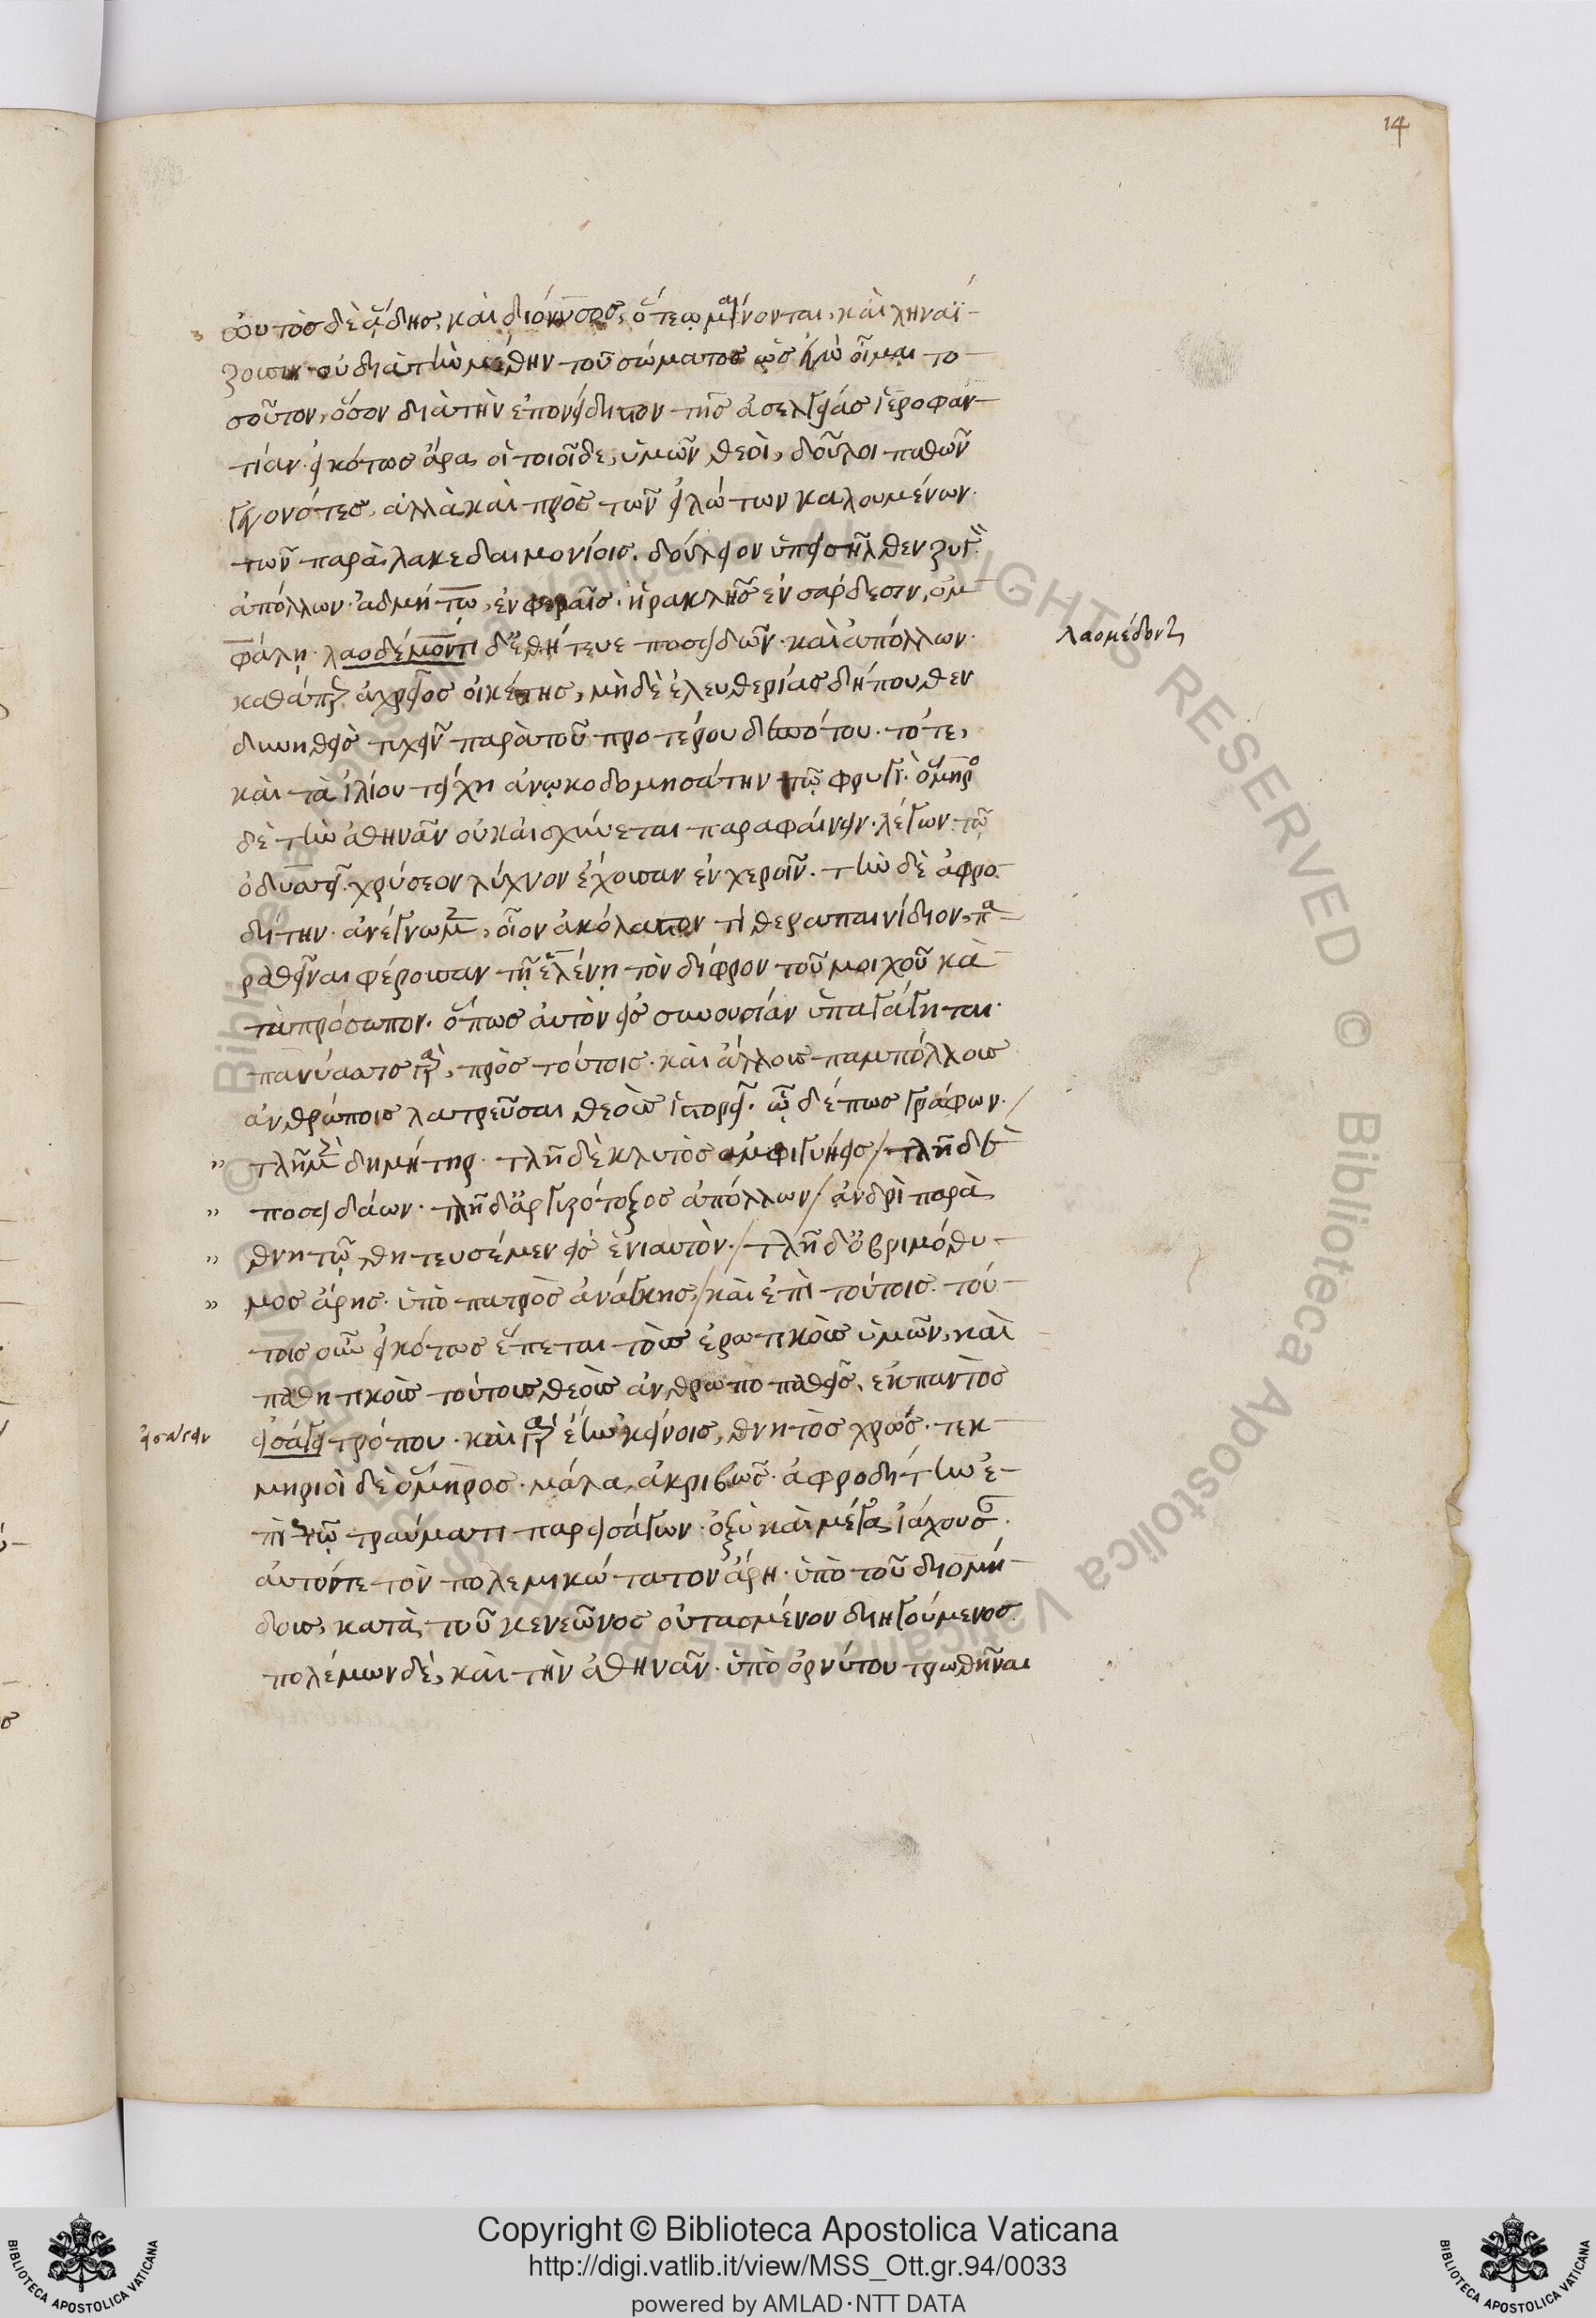 14
ωυτὸς δὲ ἅδης, καὶ διόνυσος, ὅτεῳ μαίνονται, καὶ ληναΐ-
ζουσιν· οὐ διὰ τὴν μέθην τοῦ σώματος ὡς ἐγὼ οἶμαι το-
σοῦτον, ὅσον διὰ τὴν ἐπονείδιστον τῆς ἀσελγείας ἱεροφαν-
τίαν· εἰκότως ἄρα, οἱ τοιοίδε, ὑμῶν θεοὶ, δοῦλοι παθῶν
γεγονότες, ἀλλὰ καὶ πρὸς τῶν εἱλώτων καλουμένων·
τῶν παρὰ λακεδαιμονίοις. δούλειον ὑπεισῆλθεν ζυγὸν
ἀπόλλων· ἀδμήτῳ, ἐν φεραῖς· ἡρακλῆς ἐν σάρδεσιν, ὀμ-
φάλῃ· λαοδέμοντι δ' ἐθήτευε ποσειδῶν· καὶ ἀπόλλων·
λαομέδοντι
καθάπερ ἀχρεῖος οἰκέτης, μὴ δὲ ἐλευθερίας δήπουθεν
δυνηθεὶς τυχεῖν παρὰ τοῦ προτέρου δεσπότου· τότε,
καὶ τὰ ἰλίου τείχη ἀνῳκοδομησάτην τῷ φρυγί· ὅμηρος
δὲ τὴν ἀθηνᾶν οὐκ αἰσχύνεται παραφαίνειν· λέγων τῷ
ὀδυσσεῖ· χρύσεον λύχνον ἔχουσαν ἐν χεροῖν. τὴν δὲ ἀφρο-
δίτην· ἀνέγνωμεν, οἷον ἀκόλαστόν τι θεραπαινίδιον, πα-
ραθεῖναι φέρουσαν τῇ ἑλένῃ τὸν δίφρον τοῦ μοιχοῦ κα-
τὰ πρόσωπον· ὅπως αὐτὸν εἰς συνουσίαν ὑπαγάγηται·
πανύασις γὰρ, πρὸς τούτοις· καὶ ἄλλους παμπόλλους
ἀνθρώποις λατρεῦσαι θεοὺς ἱστορεῖ· ὧδέ πως γράφων· /
" τλῆ μὲν δημήτηρ· τλῆ δὲ κλυτὸς ἀμφιγυήεις / τλῆ δὲ
" ποσειδάων· τλῆ δ' ἀργυρότοξος ἀπόλλων / ἀνδρὶ παρὰ
" θνητῷ θητευσέμεν εἰς ἐνιαυτὸν· / τλῆ δ' ὀβριμόθυ-
" μος ἄρης· ὑπὸ πατρὸς ἀνάγκης / καὶ ἐπὶ τούτοις· τού-
τοις οὖν εἰκότως ἕπεται τοὺς ἐρωτικοὺς ὑμῶν, καὶ
παθητικοὺς τούτους θεοὺς ἀνθρωποπαθεῖς, ἐκ παντὸς
εἰσάγειν
εἰσάγει τρόπου· καὶ γάρ θην κείνοις, θνητὸς χρώς· τεκ-
μηριοῖ δὲ ὅμηρος· μάλα ἀκριβῶς· ἀφροδίτην ἐ-
πὶ τῷ τραύματι παρεισάγων· ὀξὺ καὶ μέγα ἰάχουσαν·
αὐτόν τε τὸν πολεμικώτατον ἄρη· ὑπὸ τοῦ διομή-
δους κατὰ τοῦ κενεῶνος οὐτασμένον διηγούμενος·
πολέμων δὲ, καὶ τὴν ἀθηνᾶν· ὑπὸ ὀρνύτου τρωθῆναι
Copyright © Biblioteca Apostolica Vaticana
http://digi.vatlib.it/view/MSS_Ott.gr.94/0033
powered by AMLAD·NTT DATA